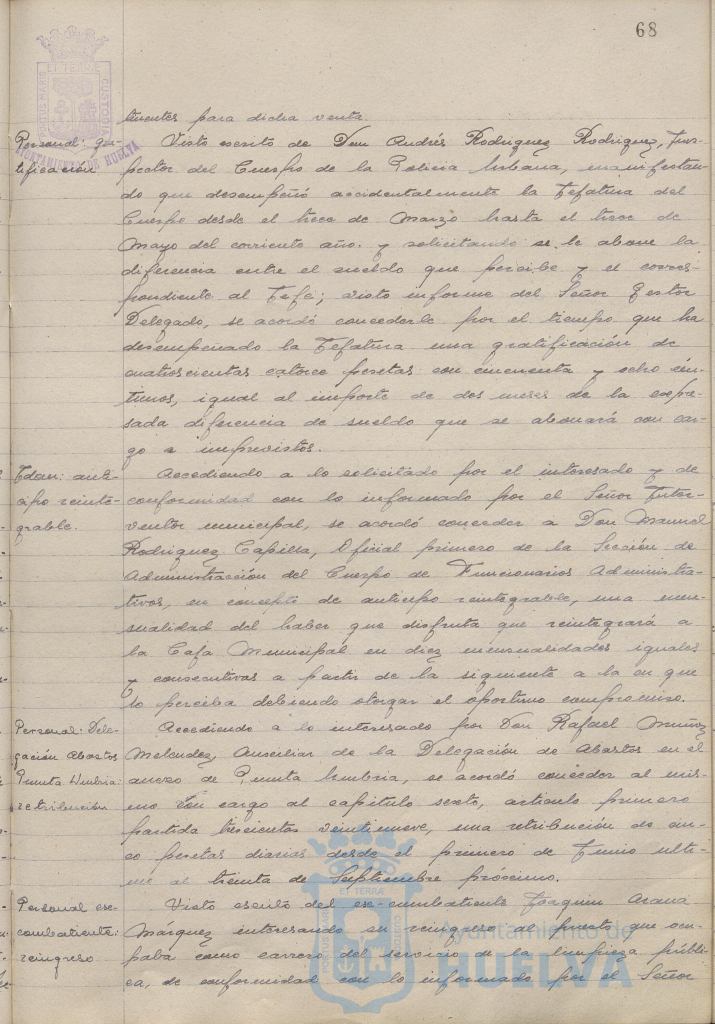 68
tinentes para dicha venta.
Personal: gra-
tificación
Visto escrito de Don Andrés Rodriguez Rodriguez, Ins-
pector del Cuerpo de la Policia Urbana, manifestan-
do que desempeñó accidentalmente la Jefatura del
Cuerpo desde el trece de Marzo hasta el trece de
Mayo del corriente año. y solicitando se le abone la
diferencia entre el sueldo que percibe y el corres-
pondiente al Jefe; visto informe del Señor Gestor
Delegado, se acordó concederle por el tiempo que ha
desempeñado la Jefatura una gratificación de
cuatroscientas catorce pesetas con cincuenta y ocho cén-
timos, igual al importe de dos meses de la expre-
sada diferencia de sueldo que se abonará con car-
go a imprevistos.
Idem: anti-
cipo reinte-
grable.
Accediendo a lo solicitado por el interesado y de
conformidad con lo informado por el Señor Inter-
ventor municipal, se acordó conceder a Don Manuel
Rodriguez Capilla, Oficial primero de la Sección de
Administración del Cuerpo de Funcionarios Administra-
tivos, en concepto de anticipo reintegrable, una men-
sualidad del haber que disfruta que reintegrará a
la Caja Municipal en diez mensualidades iguales
y consecutivas a partir de la siguiente a la en que
lo perciba debiendo otorgar el oportuno compromiso.
Personal: Dele-
gación Abastos
Punta Umbria:
retribución
Accediendo a lo interesado por Don Rafael Muñoz
Melendez, Auxiliar de la Delegación de Abastos en el
anexo de Punta Umbria, se acordó conceder al mis-
mo con cargo al capitulo sexto, articulo primero
partida trescientas veintinueve, una retribución de cin-
co pesetas diarias desde el primero de Junio ulti-
mo al treinta de Septiembre proximo.
Personal ex-
combatiente:
reingreso
Visto escrito del ex-combatiente Joaquin Arana
Marquez interesando su reingreso al puesto que ocu-
paba como carrero del servicio de la limpieza públi-
ca, de conformidad con lo informado por el Señor
PORTUS MARIS
ET TERRAE
CUSTODIA
AYUNTAMIENTO DE HUELVA
Ayuntamiento de
HUELVA